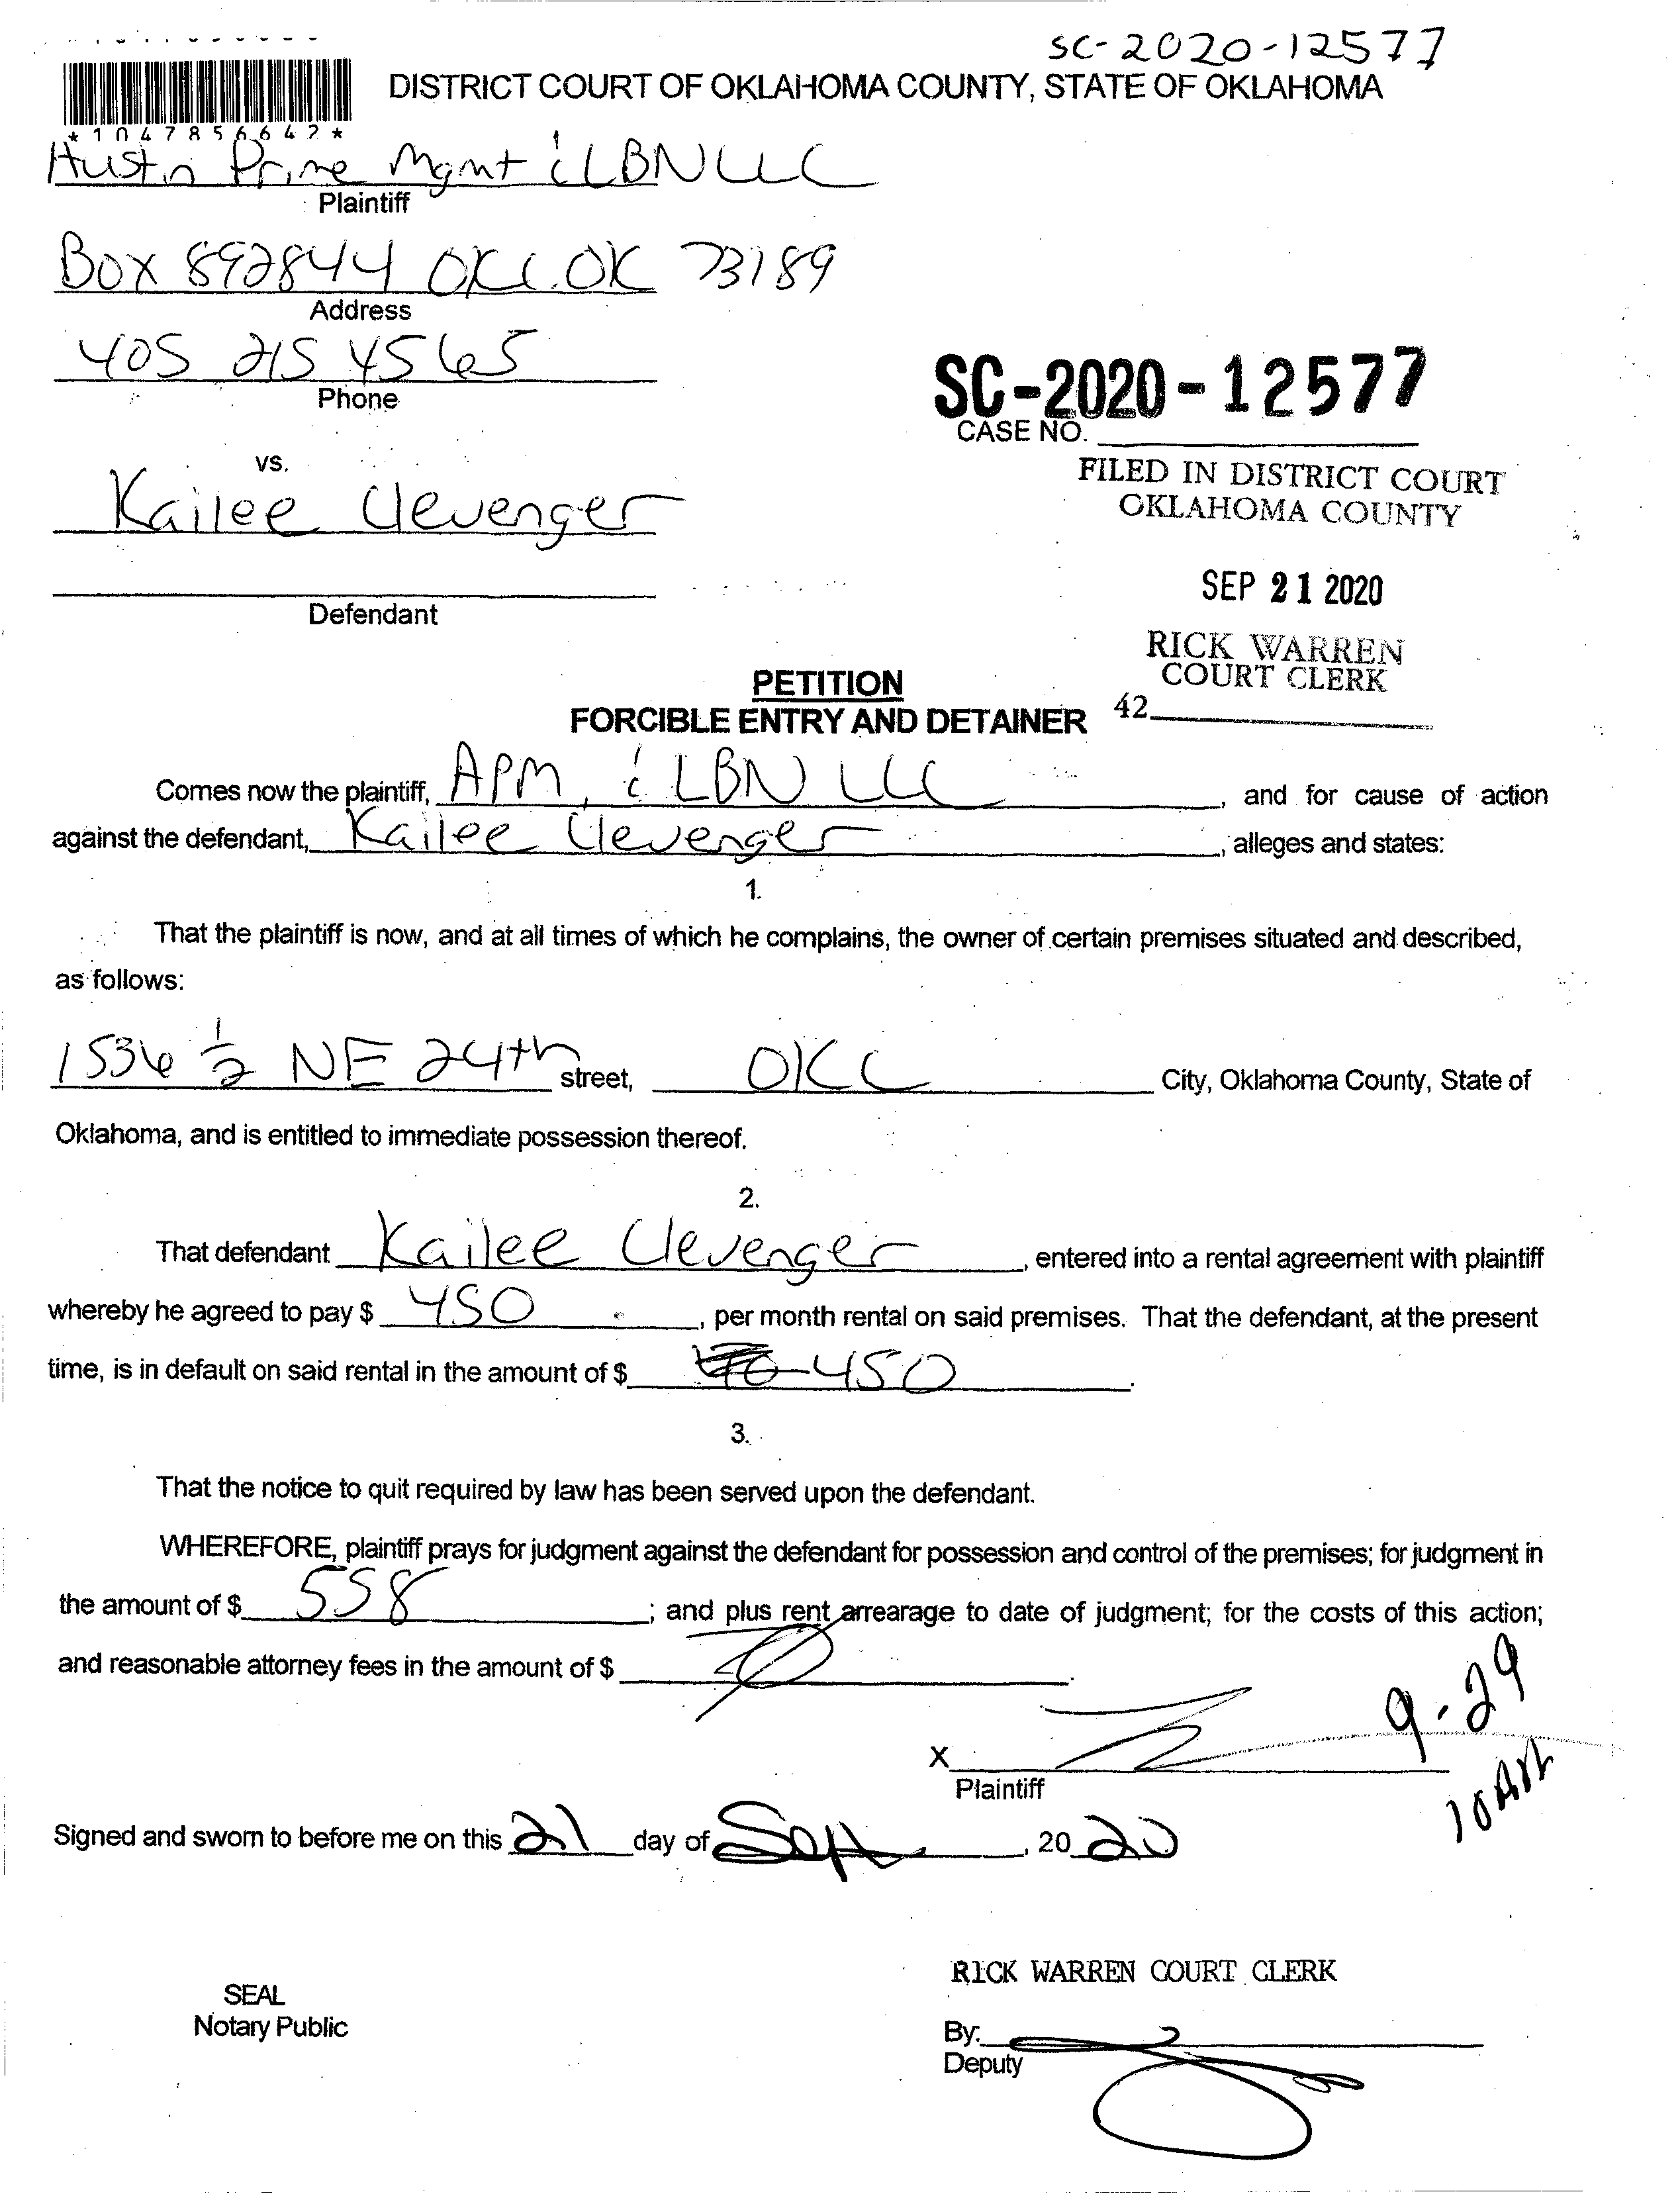 SC-2020-12577
DISTRICT COURT OF OKLAHOMA COUNTY, STATE OF OKLAHOMA
*1047856642*
Austin Prime Mgmt & LBN LLC
Plaintiff
Box 892844 OKC.OK 73189
Address
405 215 4565
Phone
SC-2020-12577
CASE NO.
vs.
FILED IN DISTRICT COURT
OKLAHOMA COUNTY
Kailee Clevenger
SEP 21 2020
Defendant
RICK WARREN
COURT CLERK
42
PETITION
FORCIBLE ENTRY AND DETAINER
Comes now the plaintiff, APM, & LBN LLC, and for cause of action
against the defendant, Kailee Clevenger, alleges and states:
1.
That the plaintiff is now, and at all times of which he complains, the owner of certain premises situated and described,
as follows:
1536 1/2 NE 24th street, OKC City, Oklahoma County, State of
Oklahoma, and is entitled to immediate possession thereof.
2.
That defendant Kailee Clevenger, entered into a rental agreement with plaintiff
whereby he agreed to pay $ 450, per month rental on said premises. That the defendant, at the present
time, is in default on said rental in the amount of $ 450.
3.
That the notice to quit required by law has been served upon the defendant.
WHEREFORE, plaintiff prays for judgment against the defendant for possession and control of the premises; for judgment in
the amount of $ 558; and plus rent arrearage to date of judgment; for the costs of this action;
and reasonable attorney fees in the amount of $
9-29
X
Plaintiff
10AM
Signed and sworn to before me on this 21 day of Sept, 20 20
RICK WARREN COURT CLERK
SEAL
Notary Public
By:
Deputy